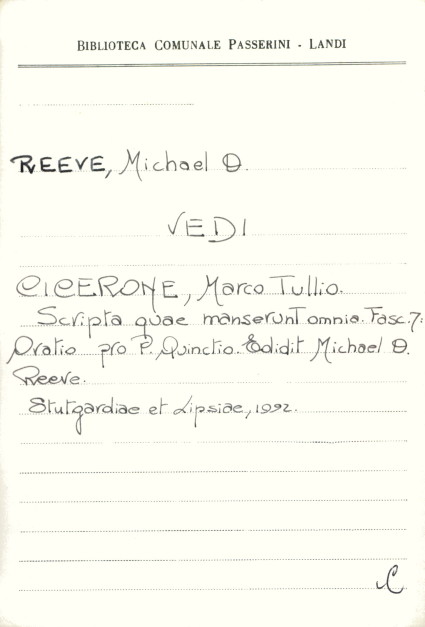 BIBLIOTECA COMUNALE PASSERINI - LANDI
REEVE, Michael D.
VEDI
CICERONE, Marco Tullio.
Scripta quae manserunt omnia. Fasc. 7:
Oratio pro P. Quinctio. Edidit Michael D.
Reeve.
Stutgardiae et Lipsiae, 1992.
C